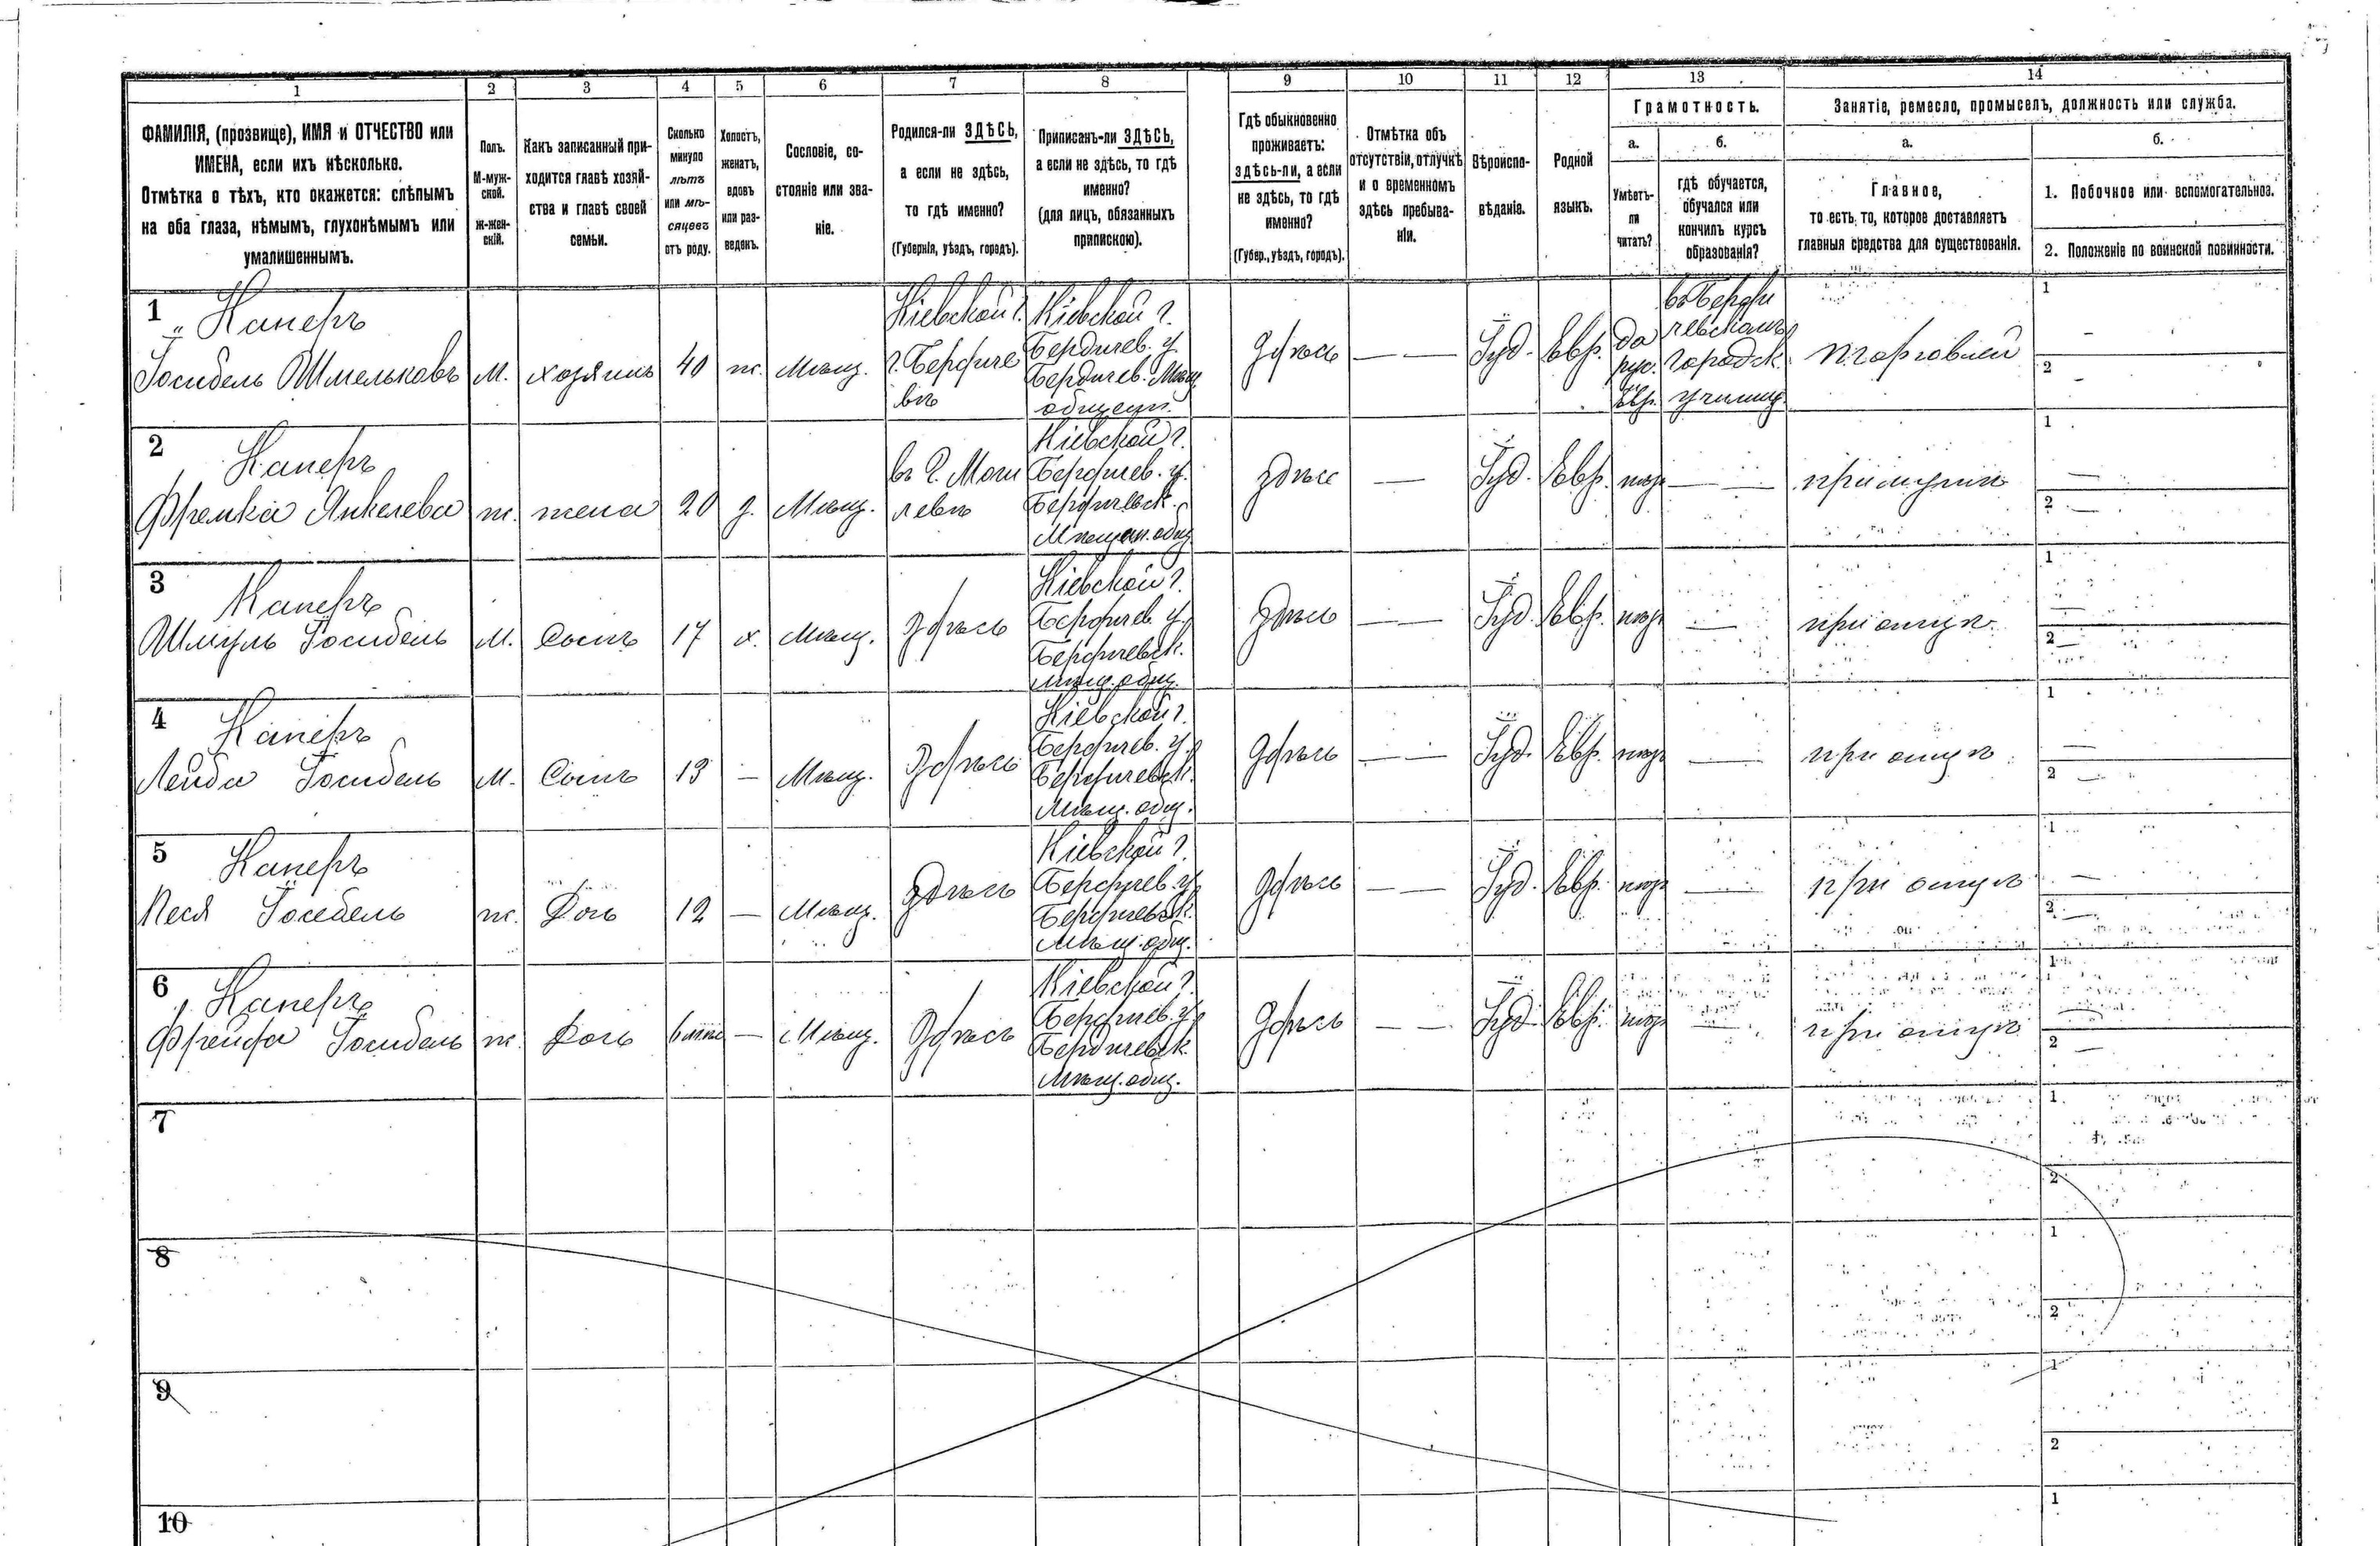 1 2 3 4 5 6 7 8 9 10 11 12 13 14
ФАМИЛІЯ, (прозвище), ИМЯ и ОТЧЕСТВО или
ИМЕНА, если ихъ нѣсколько.
Отмѣтка о тѣхъ, кто окажется: слѣпымъ
на оба глаза, нѣмымъ, глухонѣмымъ или
умалишеннымъ.
Полъ.
М-муж-
ской.
Ж-жен-
скій.
Какъ записанный при-
ходится главѣ хозяй-
ства и главѣ своей
семьи.
Сколько
минуло
лѣтъ
или мѣ-
сяцевъ
отъ роду.
Холостъ,
женатъ,
вдовъ
или раз-
веденъ.
Сословіе, со-
стояніе или зва-
ніе.
Родился-ли ЗДѢСЬ,
а если не здѣсь,
то гдѣ именно?
(Губернія, уѣздъ, городъ).
Приписанъ-ли ЗДѢСЬ,
а если не здѣсь, то гдѣ
именно?
(для лицъ, обязанныхъ
припискою).
Гдѣ обыкновенно
проживаетъ:
здѣсь-ли, а если
не здѣсь, то гдѣ
именно?
(Губер., уѣздъ, городъ).
Отмѣтка объ
отсутствіи, отлучкѣ
и о временномъ
здѣсь пребыва-
ніи.
Вѣроиспо-
вѣданіе.
Родной
языкъ.
Грамотность.
а.
Умѣетъ-
ли
читать?
б.
гдѣ обучается,
обучался или
кончилъ курсъ
образованія?
Занятіе, ремесло, промыселъ, должность или служба.
а.
Главное,
то есть то, которое доставляетъ
главныя средства для существованія.
б.
1. Побочное или вспомогательное.
2. Положеніе по воинской повинности.
1
Каперъ
Іосибель Шмельковъ
М.
хозяинъ
40
ж.
Мѣщ.
Кіевской г.
г. Бердиче
вѣ
Кіевской г.
Бердичев. у.
Бердичев. Мѣщ
общест.
здѣсь
— —
Іуд.
Евр.
да
рус.
Евр.
въ Берди
чевскомъ
городск.
училищ.
торговлей
1 –
2 –
2
Каперъ
Фремка Янкелева
ж.
жена
20
з.
Мѣщ.
въ г. Моги
левѣ
Кіевской г.
Бердичев. у.
Бердичевск.
Мѣщан. общ
здѣсь
—
Іуд.
Евр.
— —
при мужѣ
1 —
2 —
3
Каперъ
Шмуль Іосибель
М.
Сынъ
17
х.
Мѣщ.
здѣсь
Кіевской г.
Бердичев. у.
Бердичевск.
мѣщ. общ.
здѣсь
— —
Іуд.
Евр.
—
при отцѣ
1 —
2 —
4
Каперъ
Лейба Іосибель
М.
Сынъ
13
—
Мѣщ.
здѣсь
Кіевской г.
Бердичев. у.
Бердичевск.
Мѣщ. общ.
здѣсь
— —
Іуд.
Евр.
—
при отцѣ
1 —
2 —
5
Каперъ
Песя Іосебель
ж.
Дочь
12
—
Мѣщ.
здѣсь
Кіевской г.
Бердичев. у.
Бердичевск.
Мѣщ. общ.
здѣсь
— —
Іуд.
Евр.
—
при отцѣ
1 —
2 —
6
Каперъ
Фрейда Іосибель
ж.
Дочь
—
Мѣщ.
здѣсь
Кіевской г.
Бердичев. у.
Бердичевск.
Мѣщ. общ.
здѣсь
— —
Іуд.
Евр.
—
при отцѣ
1 —
2 —
7
1
2
8
1
2
9
1
2
10
1